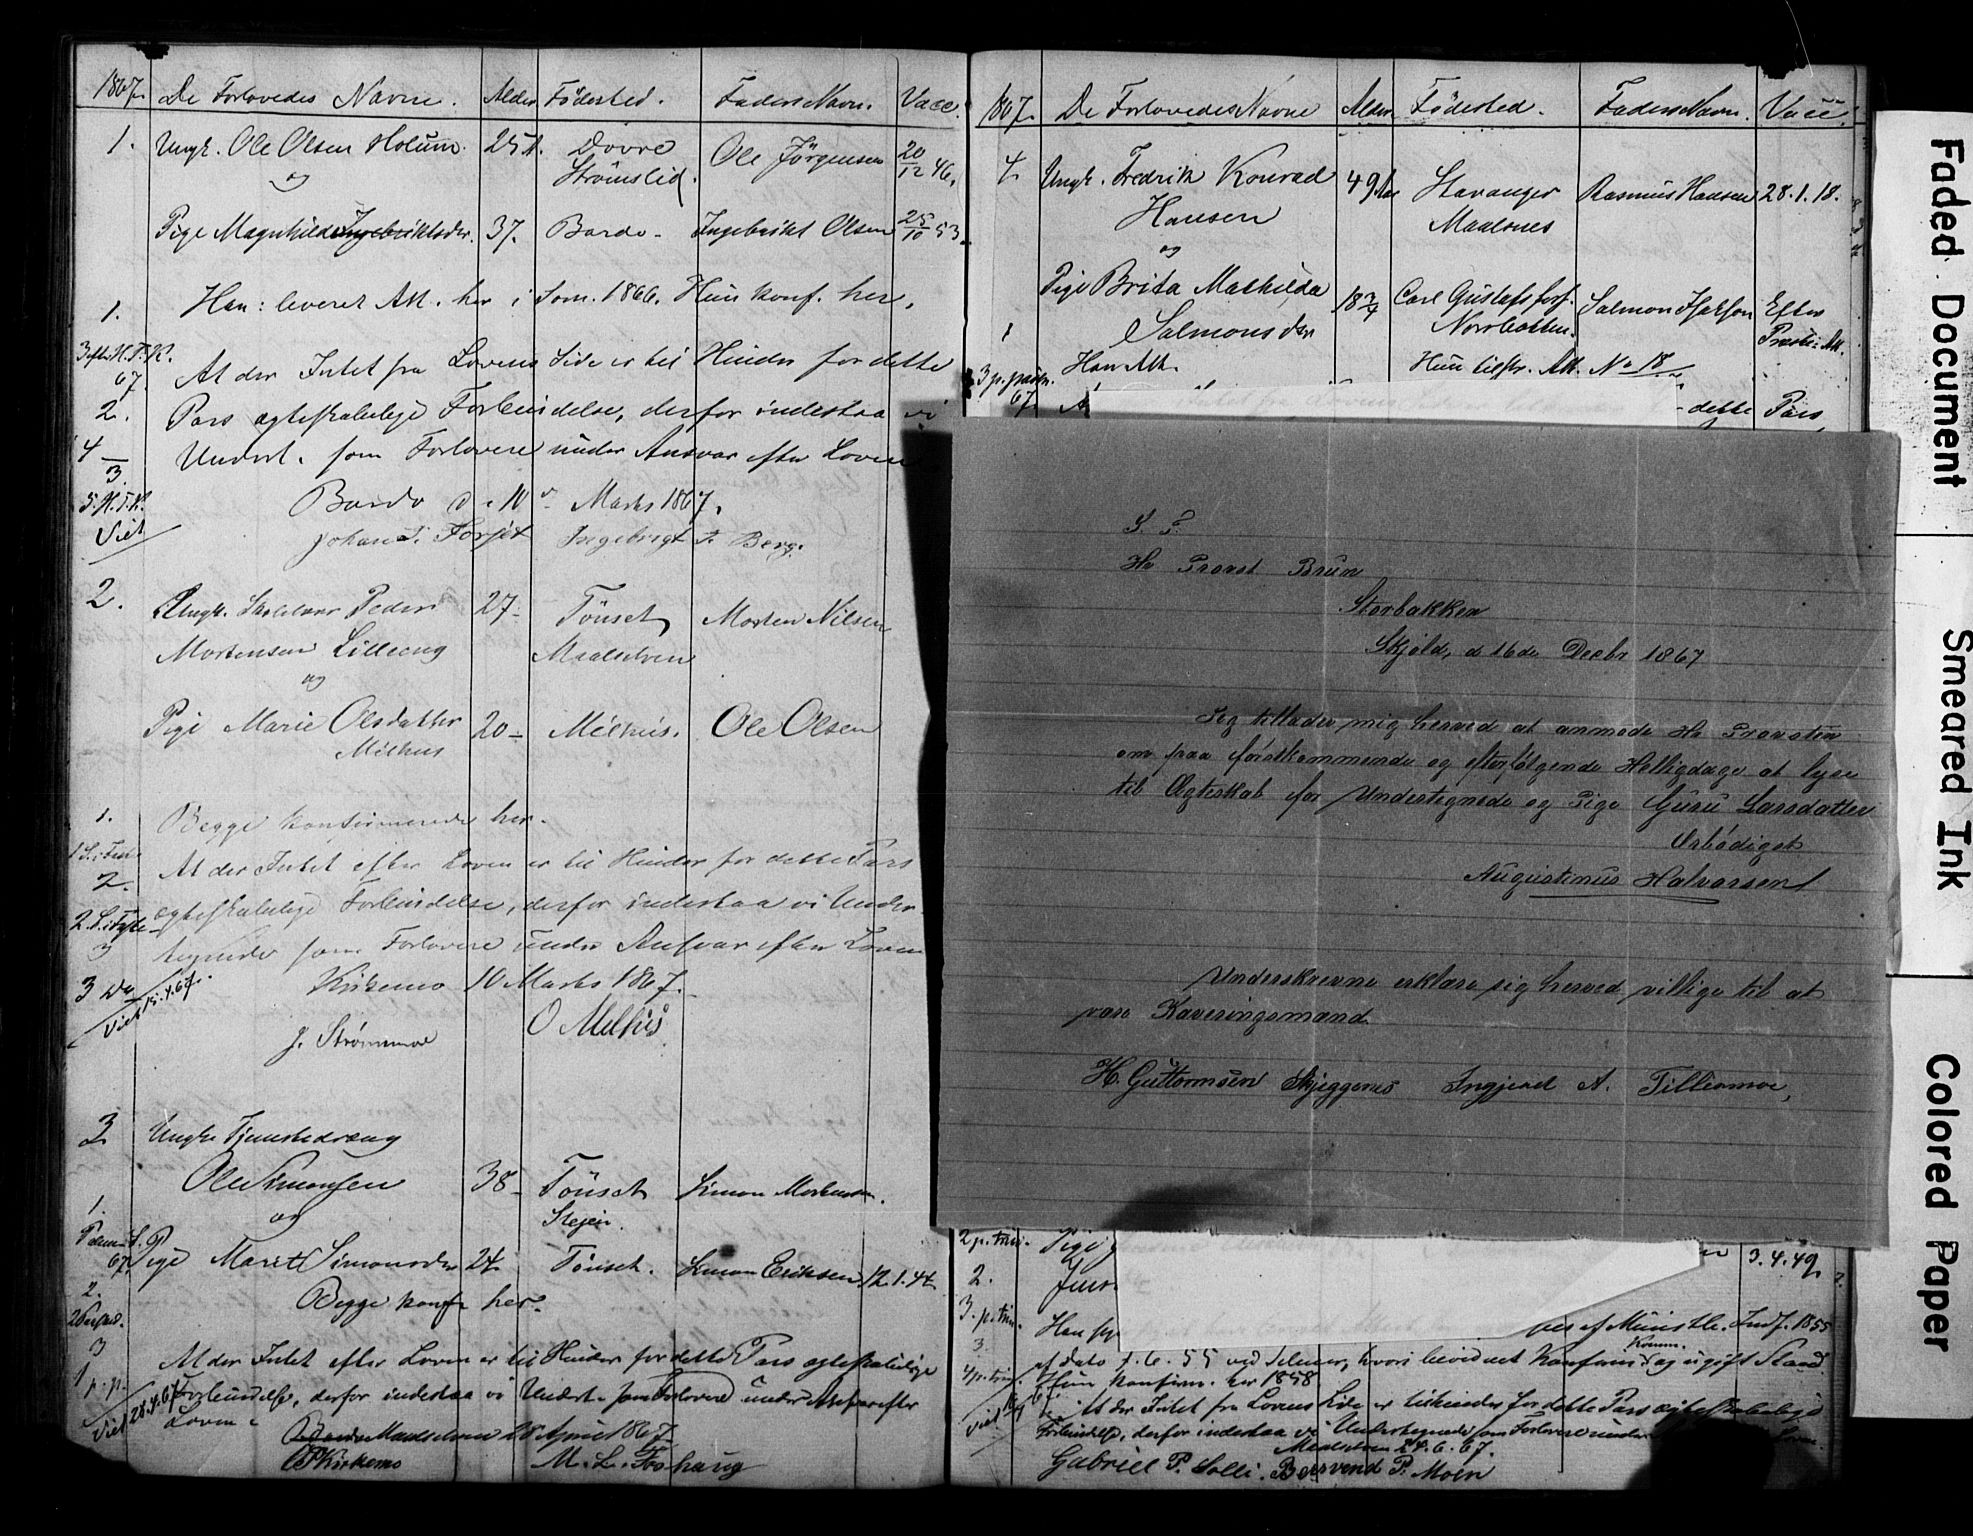 1867. De Forlovedes Navne. Alder Födested. Faders Navn. Vacc.
1. Ungk. Ole Olsen Holum. 25 A. Dovre Ole Jörgensen 20/12 46.
og Strömslid.
Pige Magnhild Ingebriktsdr. 37. Bardo - Ingebrikt Olsen 25/10 53.
Han: leveret Att. her i Som. 1866. Hun konf. her.
1.
3 eft. H.T.K. At der Intet fra Lovens Side er til Hinder for dette
67.
2. Pars ægteskabelige Forbindelse, derfor indestaa vi
4 Undert. som Forlovere under Ansvar efter Loven
3.
5. H.T.K. Bardo d. 10 Marts 1867.
Viet Johan Forset Ingebrigt Berg.
2. Ungk. Peder 27- Tönset Morten Nilsen
Mortensen Lilleeng Maalselven
og
Pige Marie Olsdatter 20- Melhus. Ole Olsen
Melhus
1. Begge konfirmerede her.
1 S. i Fast. At der Intet efter Loven er til Hinder for dette Pars
2.
2. S. i Faste ægteskabelige Forbindelse, derfor indestaa vi Under-
3 tegnede som Forlovere under Ansvar efter Loven
3 Do Kirkemo 10 Marts 1867.
Viet 15.4.67. J. Strømmoe O Melhus
3 Ungk. Tjenestedreng
Ole Simonsen 38- Tönset Simon Mortensen.
1. og Stejen.
Palme S. 67. Pige Marit Simonsdr 24. Tönset. Simon Eriksen 12.1.44.
2. Begge konf. her.
2 Paaskd.
3 At der Intet efter Loven er til Hinder for dette Pars ægteskabelige
1 p. p. Forbindelse, derfor indestaa vi Undert. som Forlovere under Ansvar efter
Viet 28.4.67 Loven.
Maalselven 28 April 1867.
Kirkemo M. L. Foshaug
1867. De Forlovedes Navne Alder Födested. Faders Navn. Vacc.
4. Ungk. Fredrik Konrad 49 Aar Stavanger Rasmus Hansen 28.1.18.
Hansen Maalsnes
og
Pige Brita Mathilda 18 3/4 Carl Gustafs fors. Salmon Isakson Efter
1 Salmonsdtr Norrbotten. Præste-Att.
3 p. paask. Han Att. Hun tilstr. Att. No 18
67. dette Pars
S. T.
Hr Provst Brun
Storbakken
Skjold, d 16de Decbr 1867
Jeg tillader mig herved at anmode Hr Provsten
om paa förstkommende og efterfölgende Helligdage at lyse
til Ægteskab for Undertegnede og Pige Guru Larsdatter
Ærbödigst
Augustinus Halvorsen
Underskrevne erklære sig herved villige til at
være Kaveringsmænd
H. Guttormsen Skjeggenes Ingjerd A. Tilliermoe,
2 p. trin. Pige 3.4.49.
2. Jens
3. p. trin. Han af Munstr. Indf. 1855
3 af Dato f. 6. 55 ved Selmer, hvori bevidnet Konfirm. Komm. og ugift Stand.
4 p. trin. Hun konfirm. her 1858
At der Intet fra Lovens Side er til Hinder for dette Pars ægteskabelige
Viet Forbindelse, derfor indestaa vi Undertegnede som Forlovere under
Maalselven 24.6.67.
Gabriel P. Solli. Bersvend P. Moen
Faded Document
Smeared Ink
Colored Paper